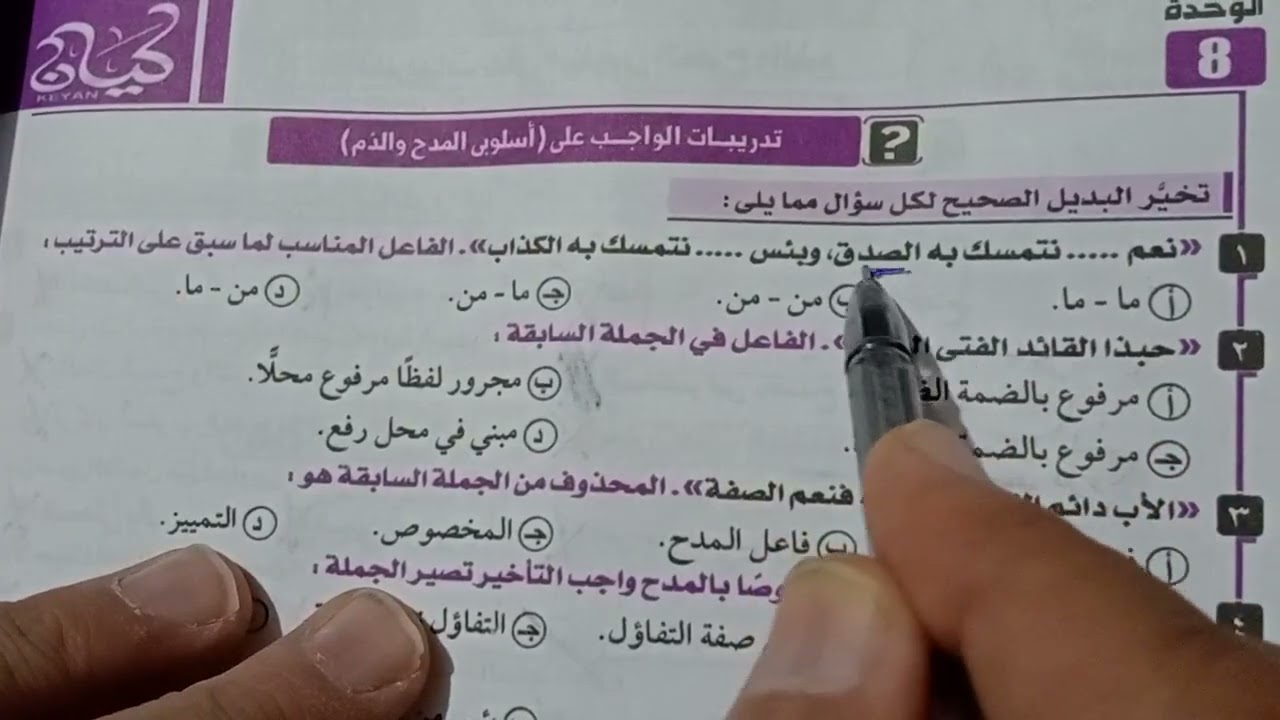 الوحدة
8
كيان
KEYAN
? تدريبات الواجب على (أسلوبى المدح والذم)
تخيَّر البديل الصحيح لكل سؤال مما يلى :
١ «نعم ..... نتمسك به الصدق، وبئس ..... نتمسك به الكذاب». الفاعل المناسب لما سبق على الترتيب :
أ ما - ما. ب من - من. جـ ما - من. د من - ما.
٢ «حبذا القائد الفتى ». الفاعل في الجملة السابقة :
أ مرفوع بالضمة ب مجرور لفظًا مرفوع محلًّا.
جـ مرفوع بالضمة د مبني في محل رفع.
٣ «الأب دائم فنعم الصفة». المحذوف من الجملة السابقة هو :
أ ب فاعل المدح. جـ المخصوص. د التمييز.
٤ بالمدح واجب التأخير تصير الجملة :
صفة التفاؤل. جـ التفاؤل